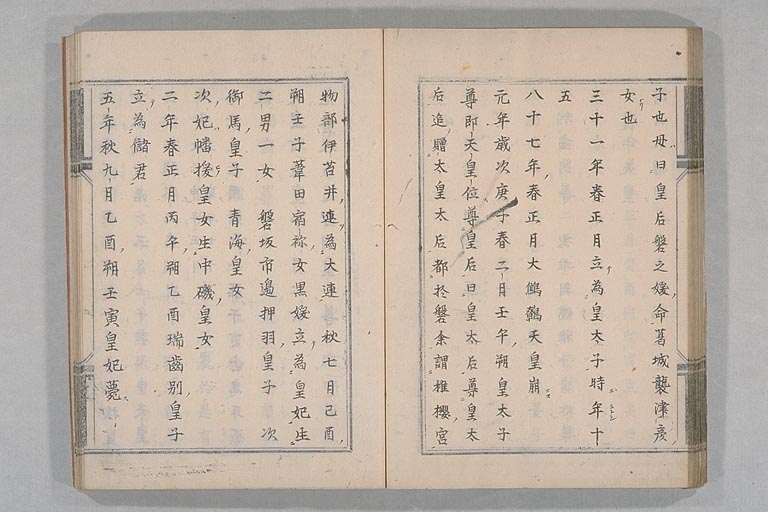 子也母曰皇后磐之媛命葛城襲津彦
女也
三十一年春正月立為皇太子時年十
五
八十七年春正月大鷦鷯天皇崩
元年歳次庚子春二月壬午朔皇太子
尊即天皇位尊皇后曰皇太后尊皇太
后追贈太皇太后都於磐余謂稚櫻宮
物部伊莒井連為大連秋七月己酉
朔壬子葦田宿祢女黒媛立為皇妃生
二男一女磐坂市邉押羽皇子次
御馬皇子青海皇女
次妃幡援皇女生中磯皇女
二年春正月丙午朔乙酉瑞齒别皇子
立為儲君
五年秋九月乙酉朔壬寅皇妃薨